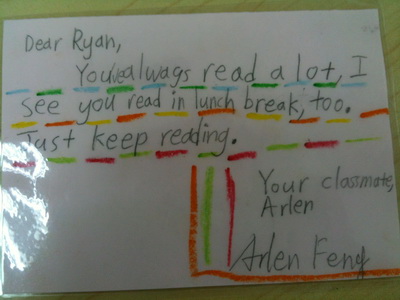 Dear Ryan,
You've always read a lot, I
see you read in lunch break, too.
Just keep reading.
Your classmate,
Arlen
Arlen Feng